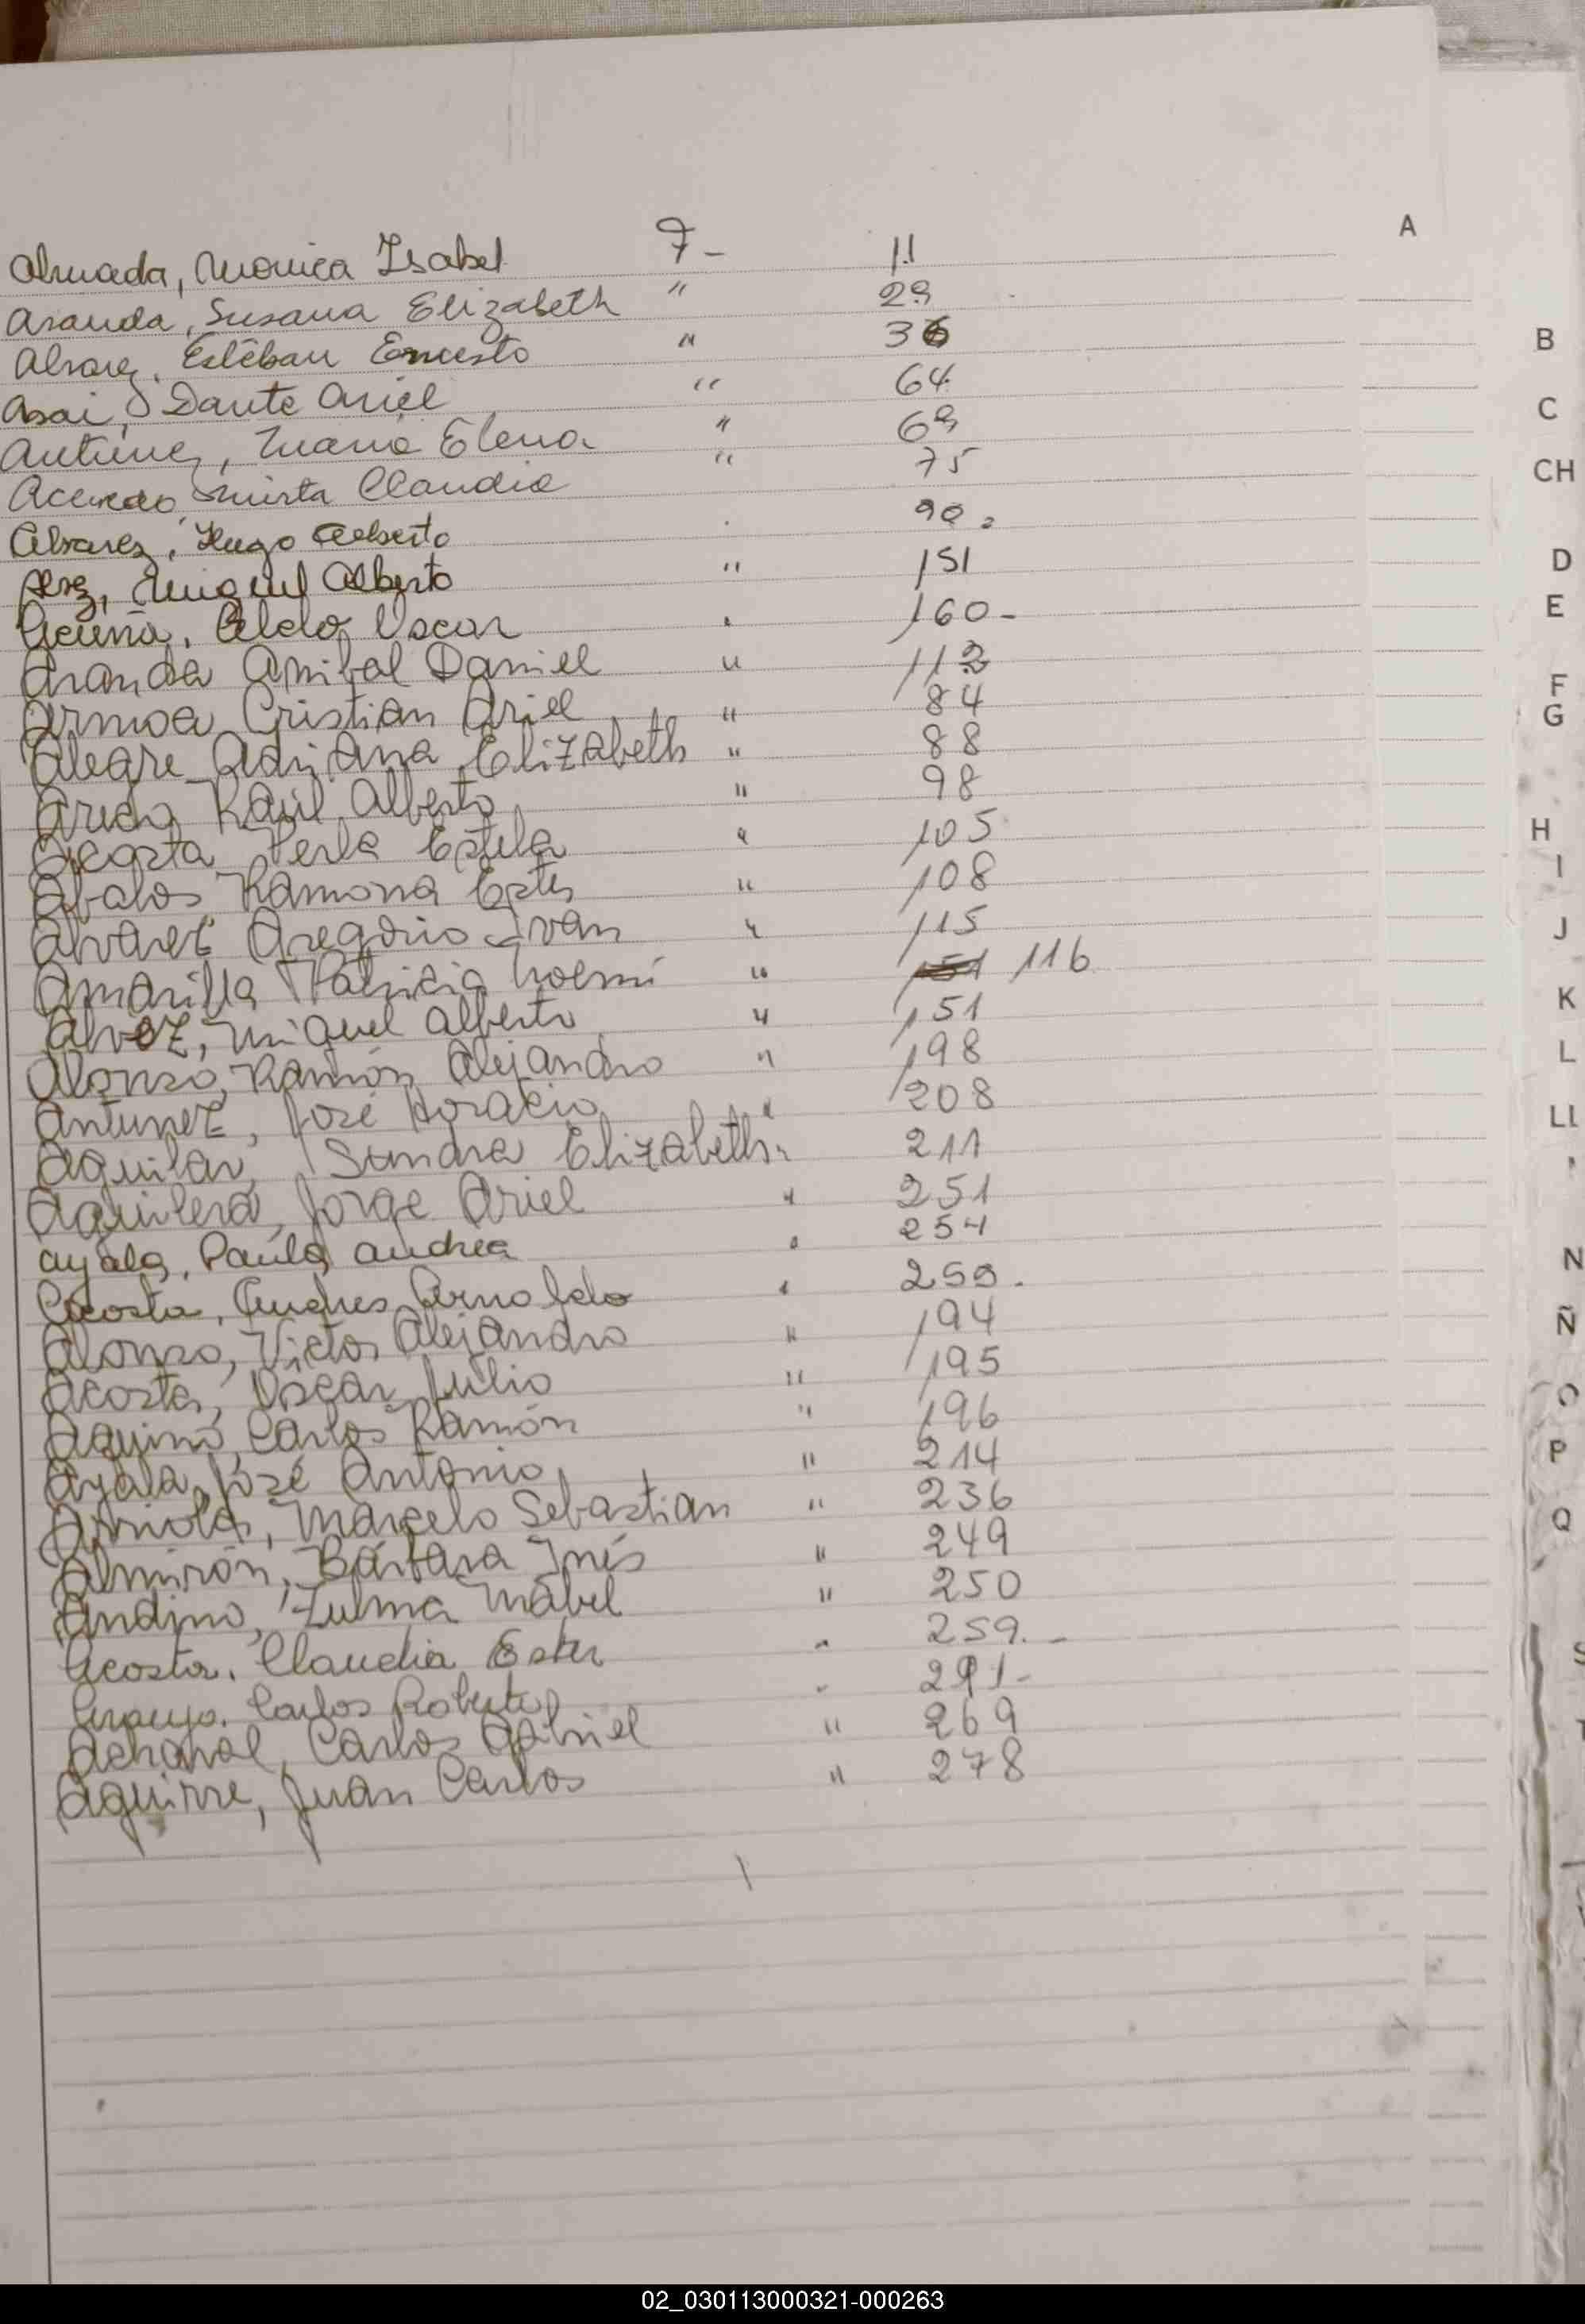 A
Almada, Monica Isabel 7- 11
Aranda, Susana Elizabeth " 29
Alvarez, Esteban Ernesto " 36
Asai, Dante Ariel " 64
Antunez, Maria Elena " 69
Acevedo, Mirta Claudia " 75
Alvarez, Hugo Alberto . 90.
Miguel Alberto " 151
Acuña, Aldo Oscar " 160-
Aranda Anibal Daniel " 112
Armoa Cristian Ariel " 84
Alegre Adriana Elizabeth " 88
Raúl Alberto " 98
Acosta Perla Estela " 105
Abalos Ramona Ester " 108
Alvarez Gregorio Ivan " 115
Amarilla Patricia Noemí " 151 116
Alvez, Miguel Alberto " 151
Alonso, Ramón Alejandro " 198
Antunez, José Horacio " 208
Aguilar, Sandra Elizabeth " 211
Aguilera, Jorge Ariel " 251
Ayala, Paula Andrea " 254
Acosta, Andres Arnoldo " 259.
Alonso, Victor Alejandro " 194
Acosta, Oscar Julio " 195
Aquino, Carlos Ramón " 196
Ayala, José Antonio " 214
Arriola, Marcelo Sebastian " 236
Almirón, Bárbara Inés " 249
Andino, Zulma Mabel " 250
Acosta, Claudia Ester " 259.-
Araujo, Carlos Roberto " 291-
Carlos Gabriel " 269
Aguirre, Juan Carlos " 278
B
C
CH
D
E
F
G
H
I
J
K
L
LL
N
Ñ
O
P
Q
02_030113000321-000263